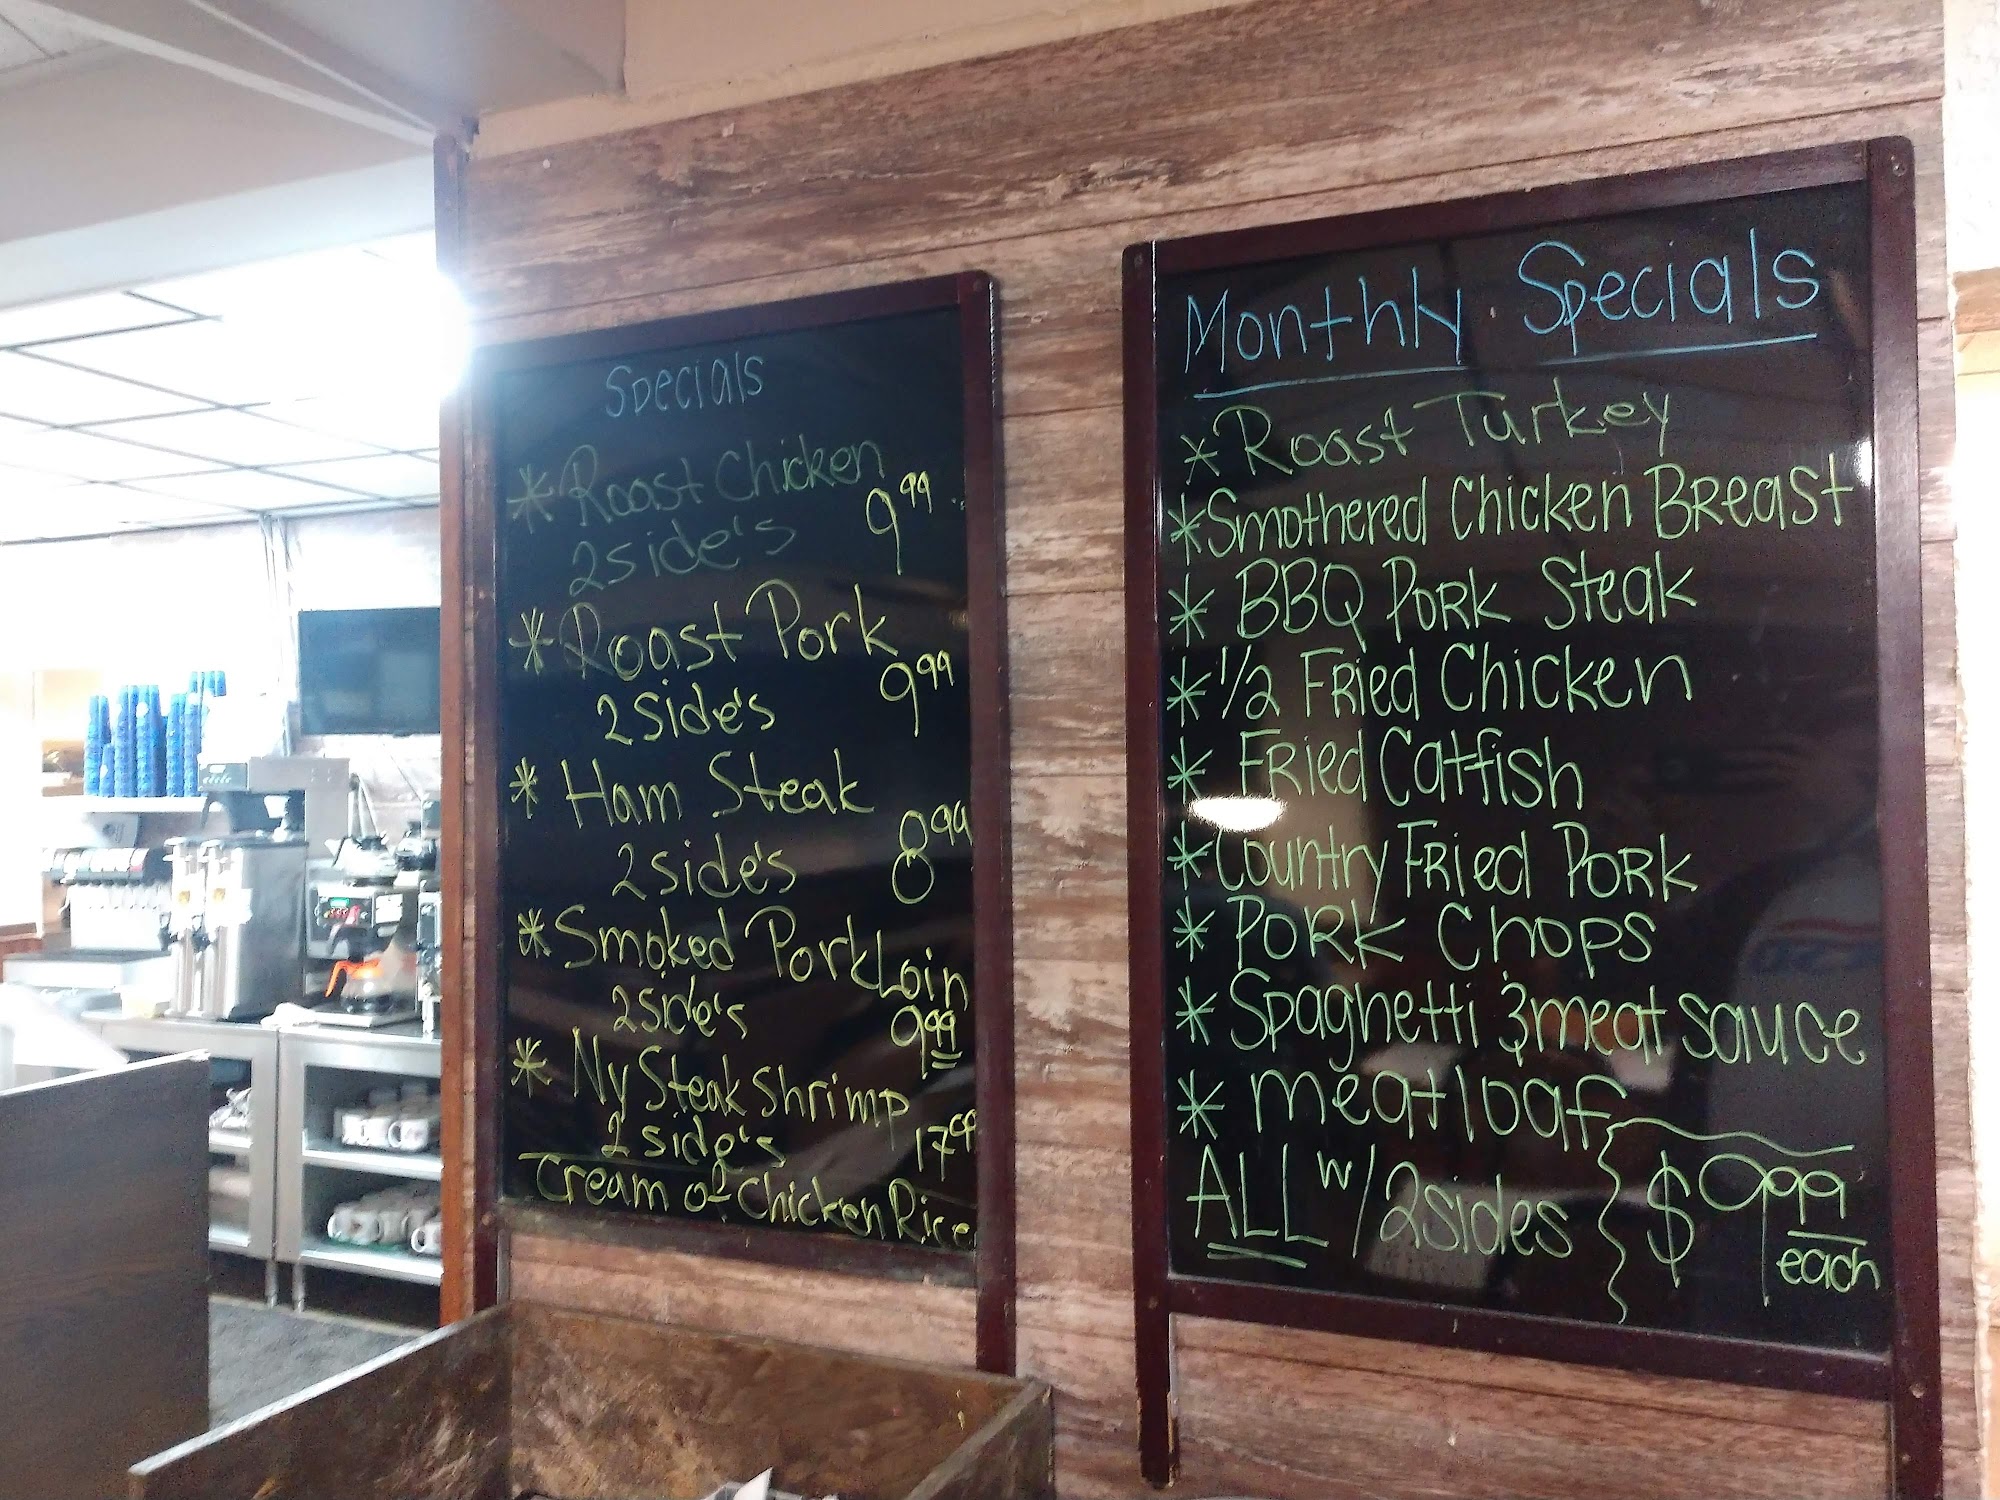 Specials
* Roast Chicken
2 side's 9.99
* Roast Pork
2 Side's 9.99
* Ham Steak
2 side's 8.99
* Smoked Pork Loin
2 side's 9.99
* Ny Steak Shrimp
2 side's 17.99
Cream of Chicken Rice
Monthly Specials
* Roast Turkey
* Smothered Chicken Breast
* BBQ Pork Steak
* 1/2 Fried Chicken
* Fried Catfish
* Country Fried Pork
* Pork Chops
* Spaghetti & meat sauce
* meatloaf
ALL w/ 2 sides } $9.99
each